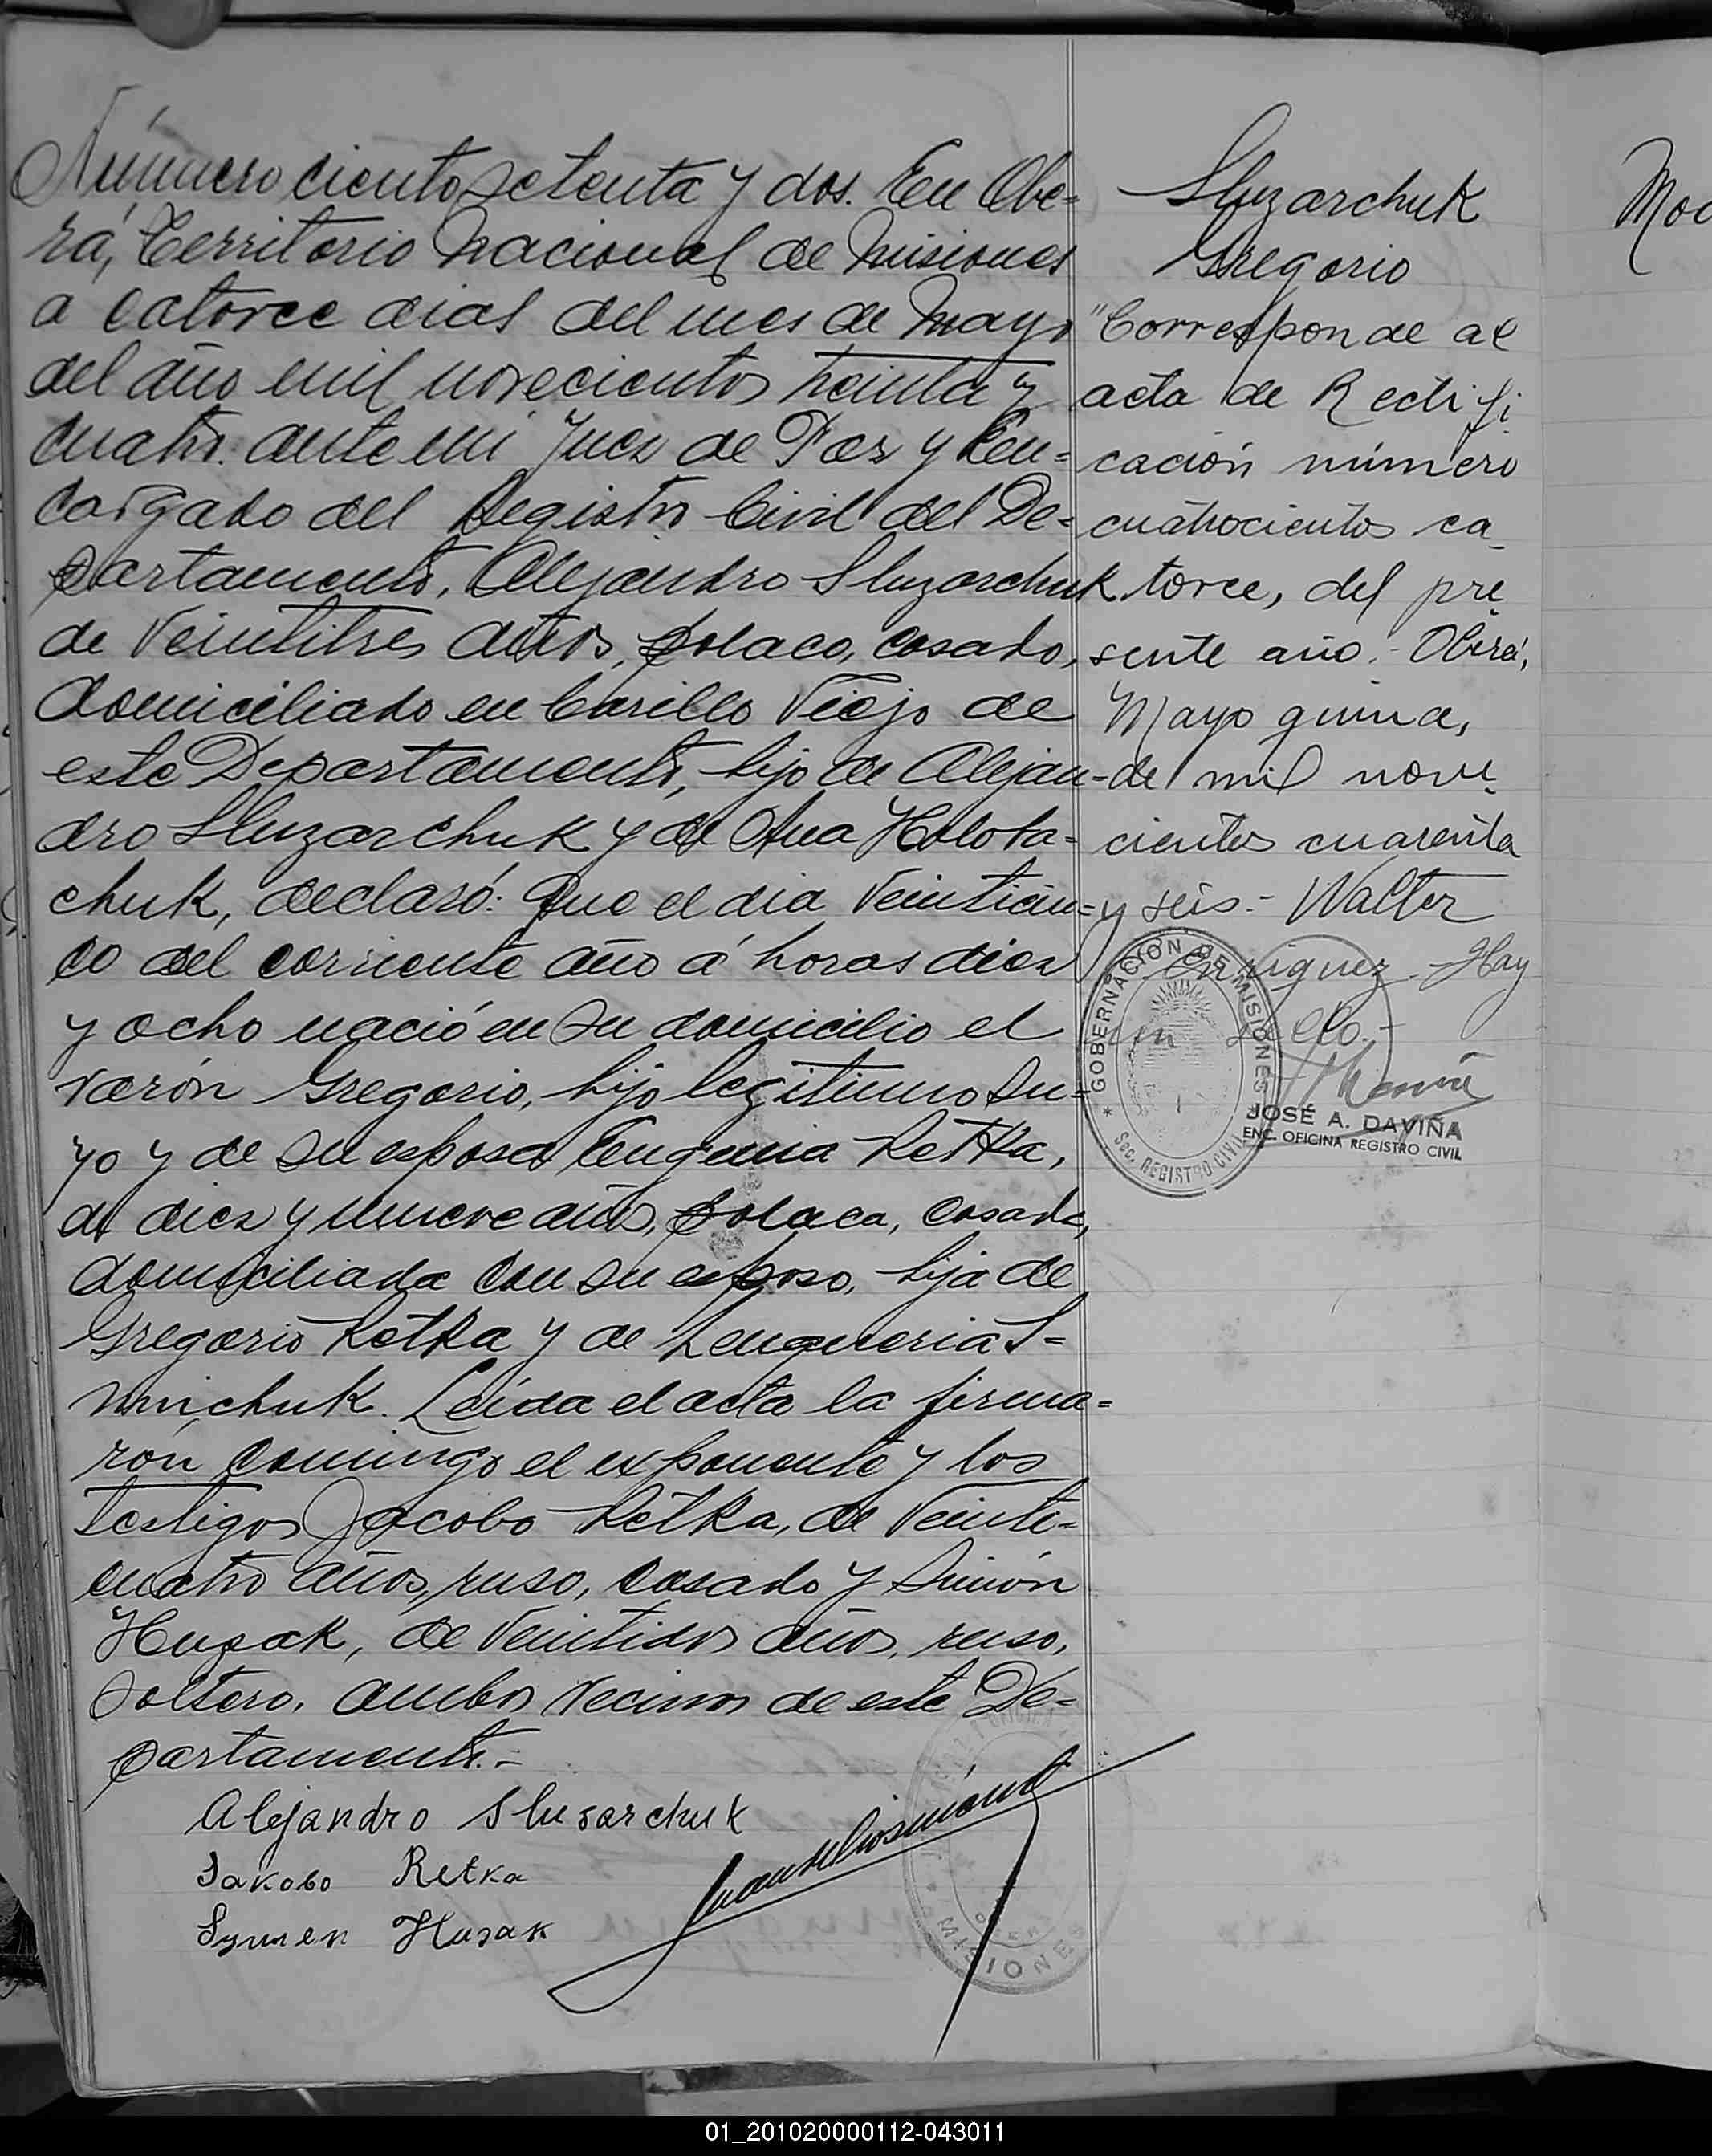 Número ciento setenta y dos. En Obe=
rá, Territorio Nacional de Misiones
a catorce dias del mes de Mayo
del año mil novecientos treinta y
cuatro. ante mi Juez de Paz y En=
cargado del Registro Civil del De=
partamento, Alejandro Sluzarchuk
de veintitres años, polaco, casado,
domiciliado en Carillo Viejo de
este Departamento, hijo de Alejan=
dro Sluzarchuk y de Ana Holota=
chuk, declaró: Que el dia veinticin=
co del corriente año á horas diez
y ocho nació en su domicilio el
varón Gregorio, hijo legitimo su=
yo y de su esposa Eugenia Retka,
de diez y nueve años, polaca, casada,
domiciliada con su esposo, hija de
Gregorio Retka y de S=
chuk. Leida el acta la firma=
rón conmigo el exponente y los
testigos Jacobo Retka, de veinti=
cuatro años, ruso, casado y Simón
Husak, de veintidos años, ruso,
soltero, ambos vecinos de este De=
partamento.-
Alejandro Slusarchuk
Jakobo Retka
Symen Husak
Sluzarchuk
Gregorio
"Corresponde al
acta de Rectifi
cación número
cuatrocientos ca
torce, del pre
sente año.- Oberá,
Mayo quince,
de mil nove
cientos cuarenta
y seis.- Walter
Enriquez.- Hay
un sello.-
GOBERNACION DE MISIONES
Sec. REGISTRO CIVIL
JOSÉ A. DAVIÑA
ENC. OFICINA REGISTRO CIVIL
MISIONES
01_201020000112-043011